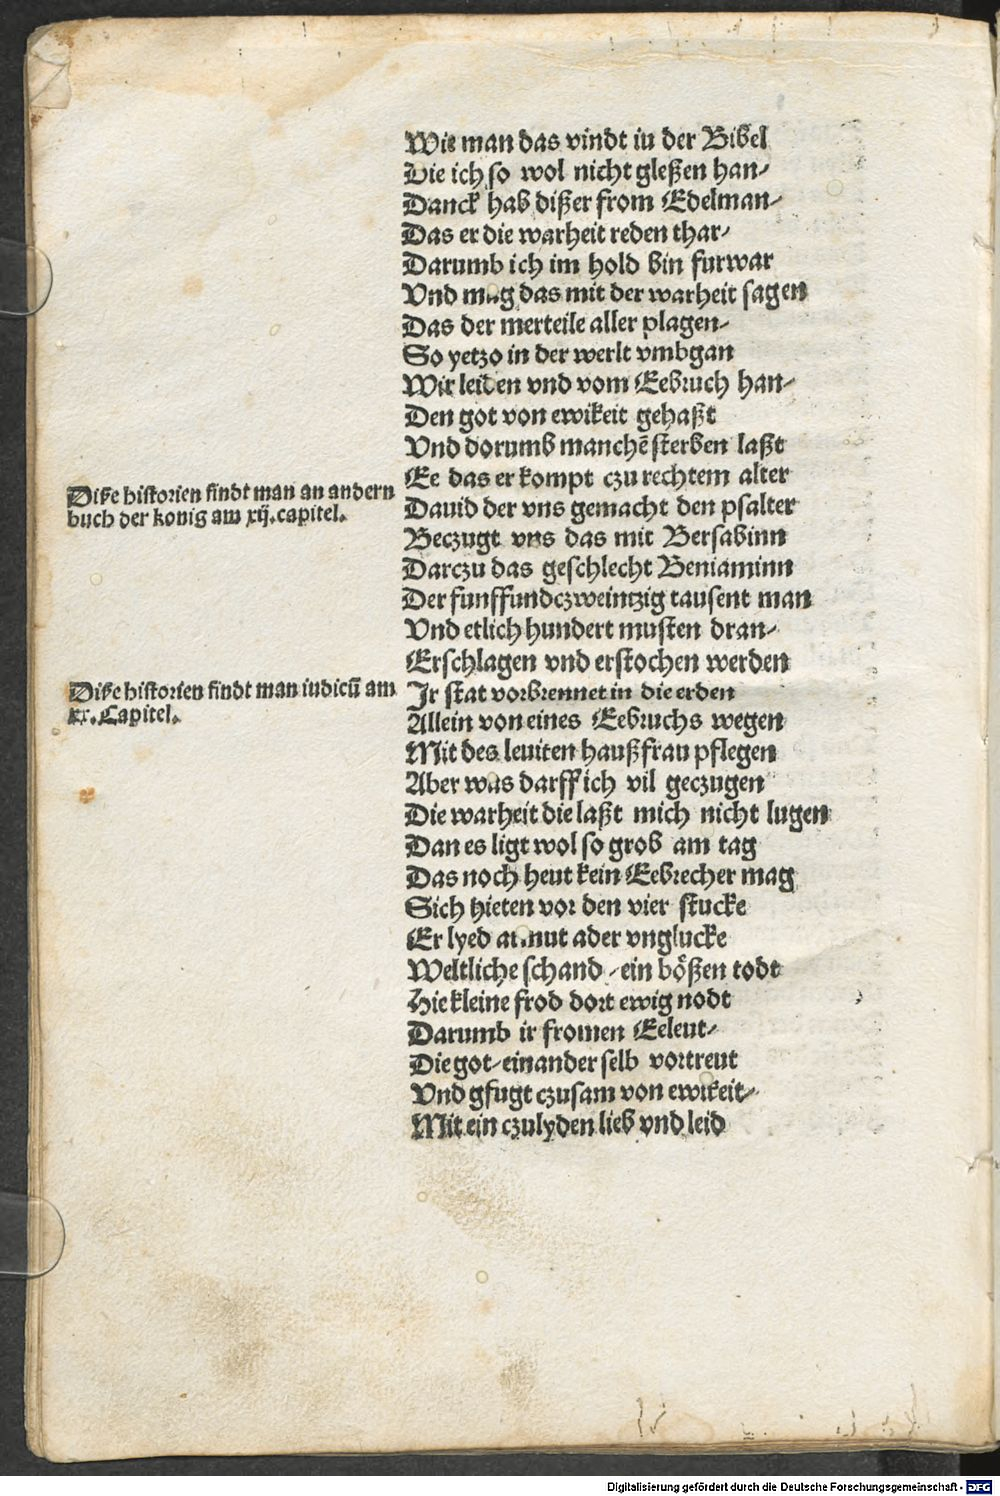 Wie man das vindt in der Bibel
Die ich so wol nicht gleßen han⸗
Danck hab dißer from Edelman⸗
Das er die warheit reden thar⸗
Darumb ich im hold bin furwar
Vnd mag das mit der warheit sagen
Das der merteile aller plagen⸗
So yetzo in der werlt vmbgan
Wir leiden vnd vom Eebruch han⸗
Den got von ewikeit gehaßt
Vnd dorumb manchē sterben laßt
Ee das er kompt czu rechtem alter
Diße historien findt man an andern
buch der konig am xij. capitel.
Dauid der vns gemacht den psalter
Beczugt vns das mit Bersabinn
Darczu das geschlecht Beniaminn
Der funffundczweintzig tausent man
Vnd etlich hundert musten dran⸗
Erschlagen vnd erstochen werden
Diße historien findt man iudicū am
xx. Capitel.
Jr stat vorbrennet in die erden
Allein von eines Eebruchs wegen
Mit des leuiten haußfrau pflegen
Aber was darff ich vil geczugen
Die warheit die laßt mich nicht lugen
Dan es ligt wol so grob am tag
Das noch heut kein Eebrecher mag
Sich hieten vor den vier stucke
Er lyed armut ader vnglucke
Weltliche schand⸗ ein bößen todt
Hie kleine frod dort ewig nodt
Darumb ir fromen Eeleut⸗
Die got⸗ einander selb vortreut
Vnd gfugt czusam von ewikeit⸗
Mit ein czulyden lieb vnd leid
Digitalisierung gefördert durch die Deutsche Forschungsgemeinschaft - DFG